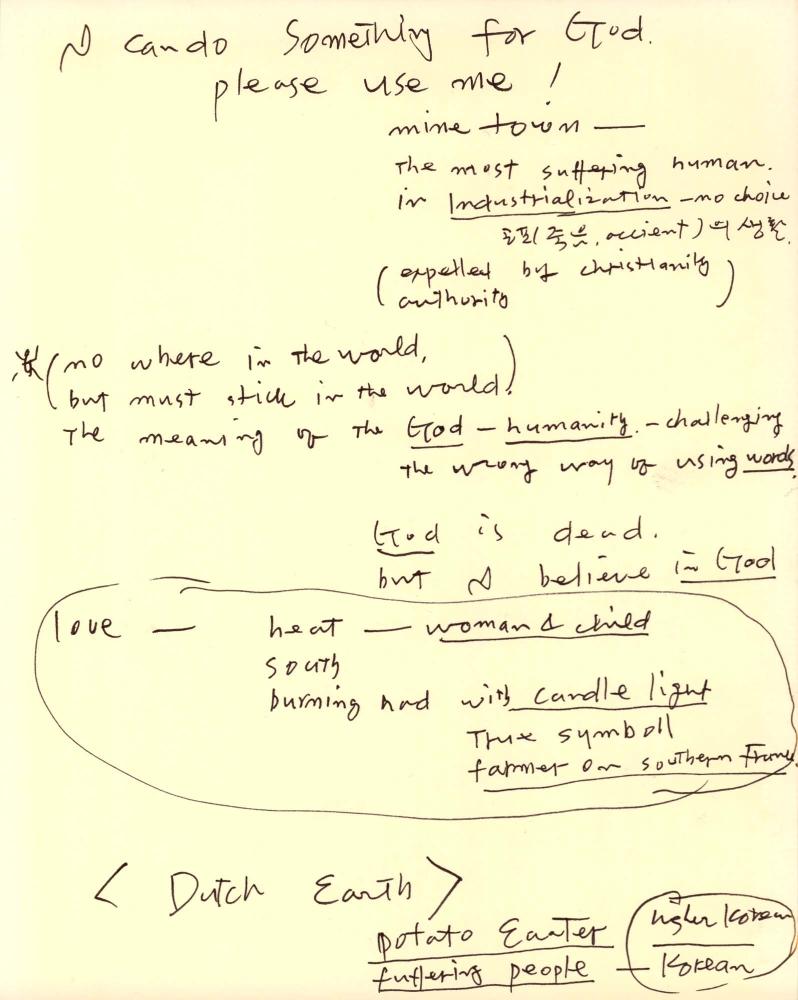 I cando Something for God.
please use me !
mine town —
The most suffering human.
in Industrialization - no choice
공포(죽음, accient)의 생활.
(expelled by christianity
authority)
(no where in the world,
but must stick in the world.)
The meaning of the God - humanity. - challenging
the wrong way of using words.
God is dead.
but I believe in God
love — heat — woman & child
south
burning had with candle light
True symboll
farmer on southern France.
< Dutch Earth >
potato Eaater
suffering people — Korean
higher Korean